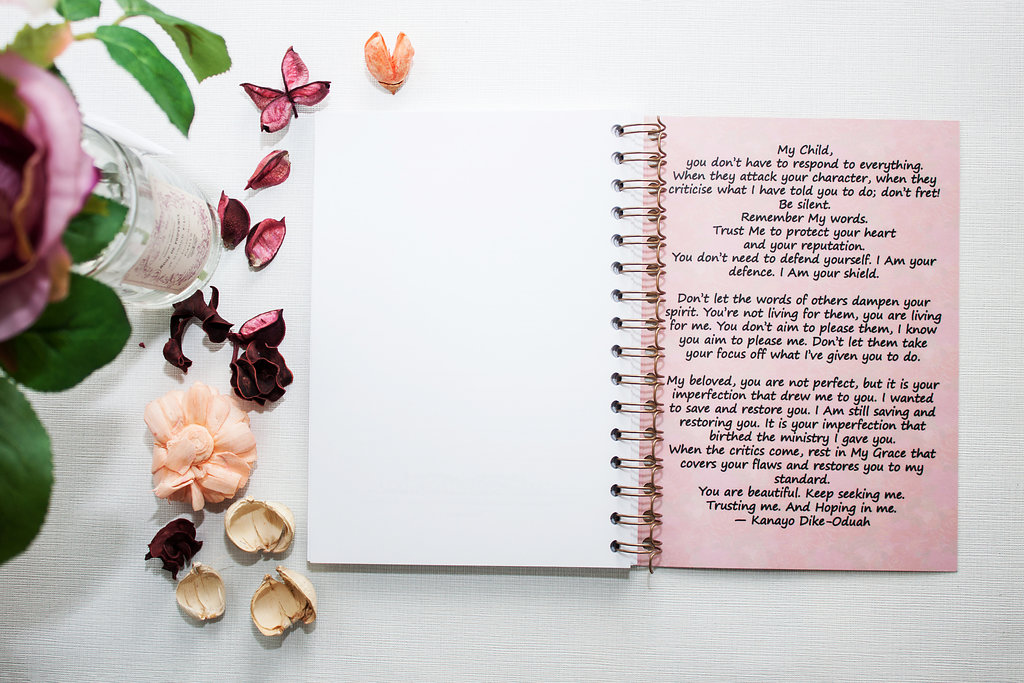 My Child,
you don't have to respond to everything.
When they attack your character, when they
criticise what I have told you to do; don't fret!
Be silent.
Remember My words.
Trust Me to protect your heart
and your reputation.
You don't need to defend yourself. I Am your
defence. I Am your shield.
Don't let the words of others dampen your
spirit. You're not living for them, you are living
for me. You don't aim to please them, I know
you aim to please me. Don't let them take
your focus off what I've given you to do.
My beloved, you are not perfect, but it is your
imperfection that drew me to you. I wanted
to save and restore you. I Am still saving and
restoring you. It is your imperfection that
birthed the ministry I gave you.
When the critics come, rest in My Grace that
covers your flaws and restores you to my
standard.
You are beautiful. Keep seeking me.
Trusting me. And Hoping in me.
— Kanayo Dike-Oduah